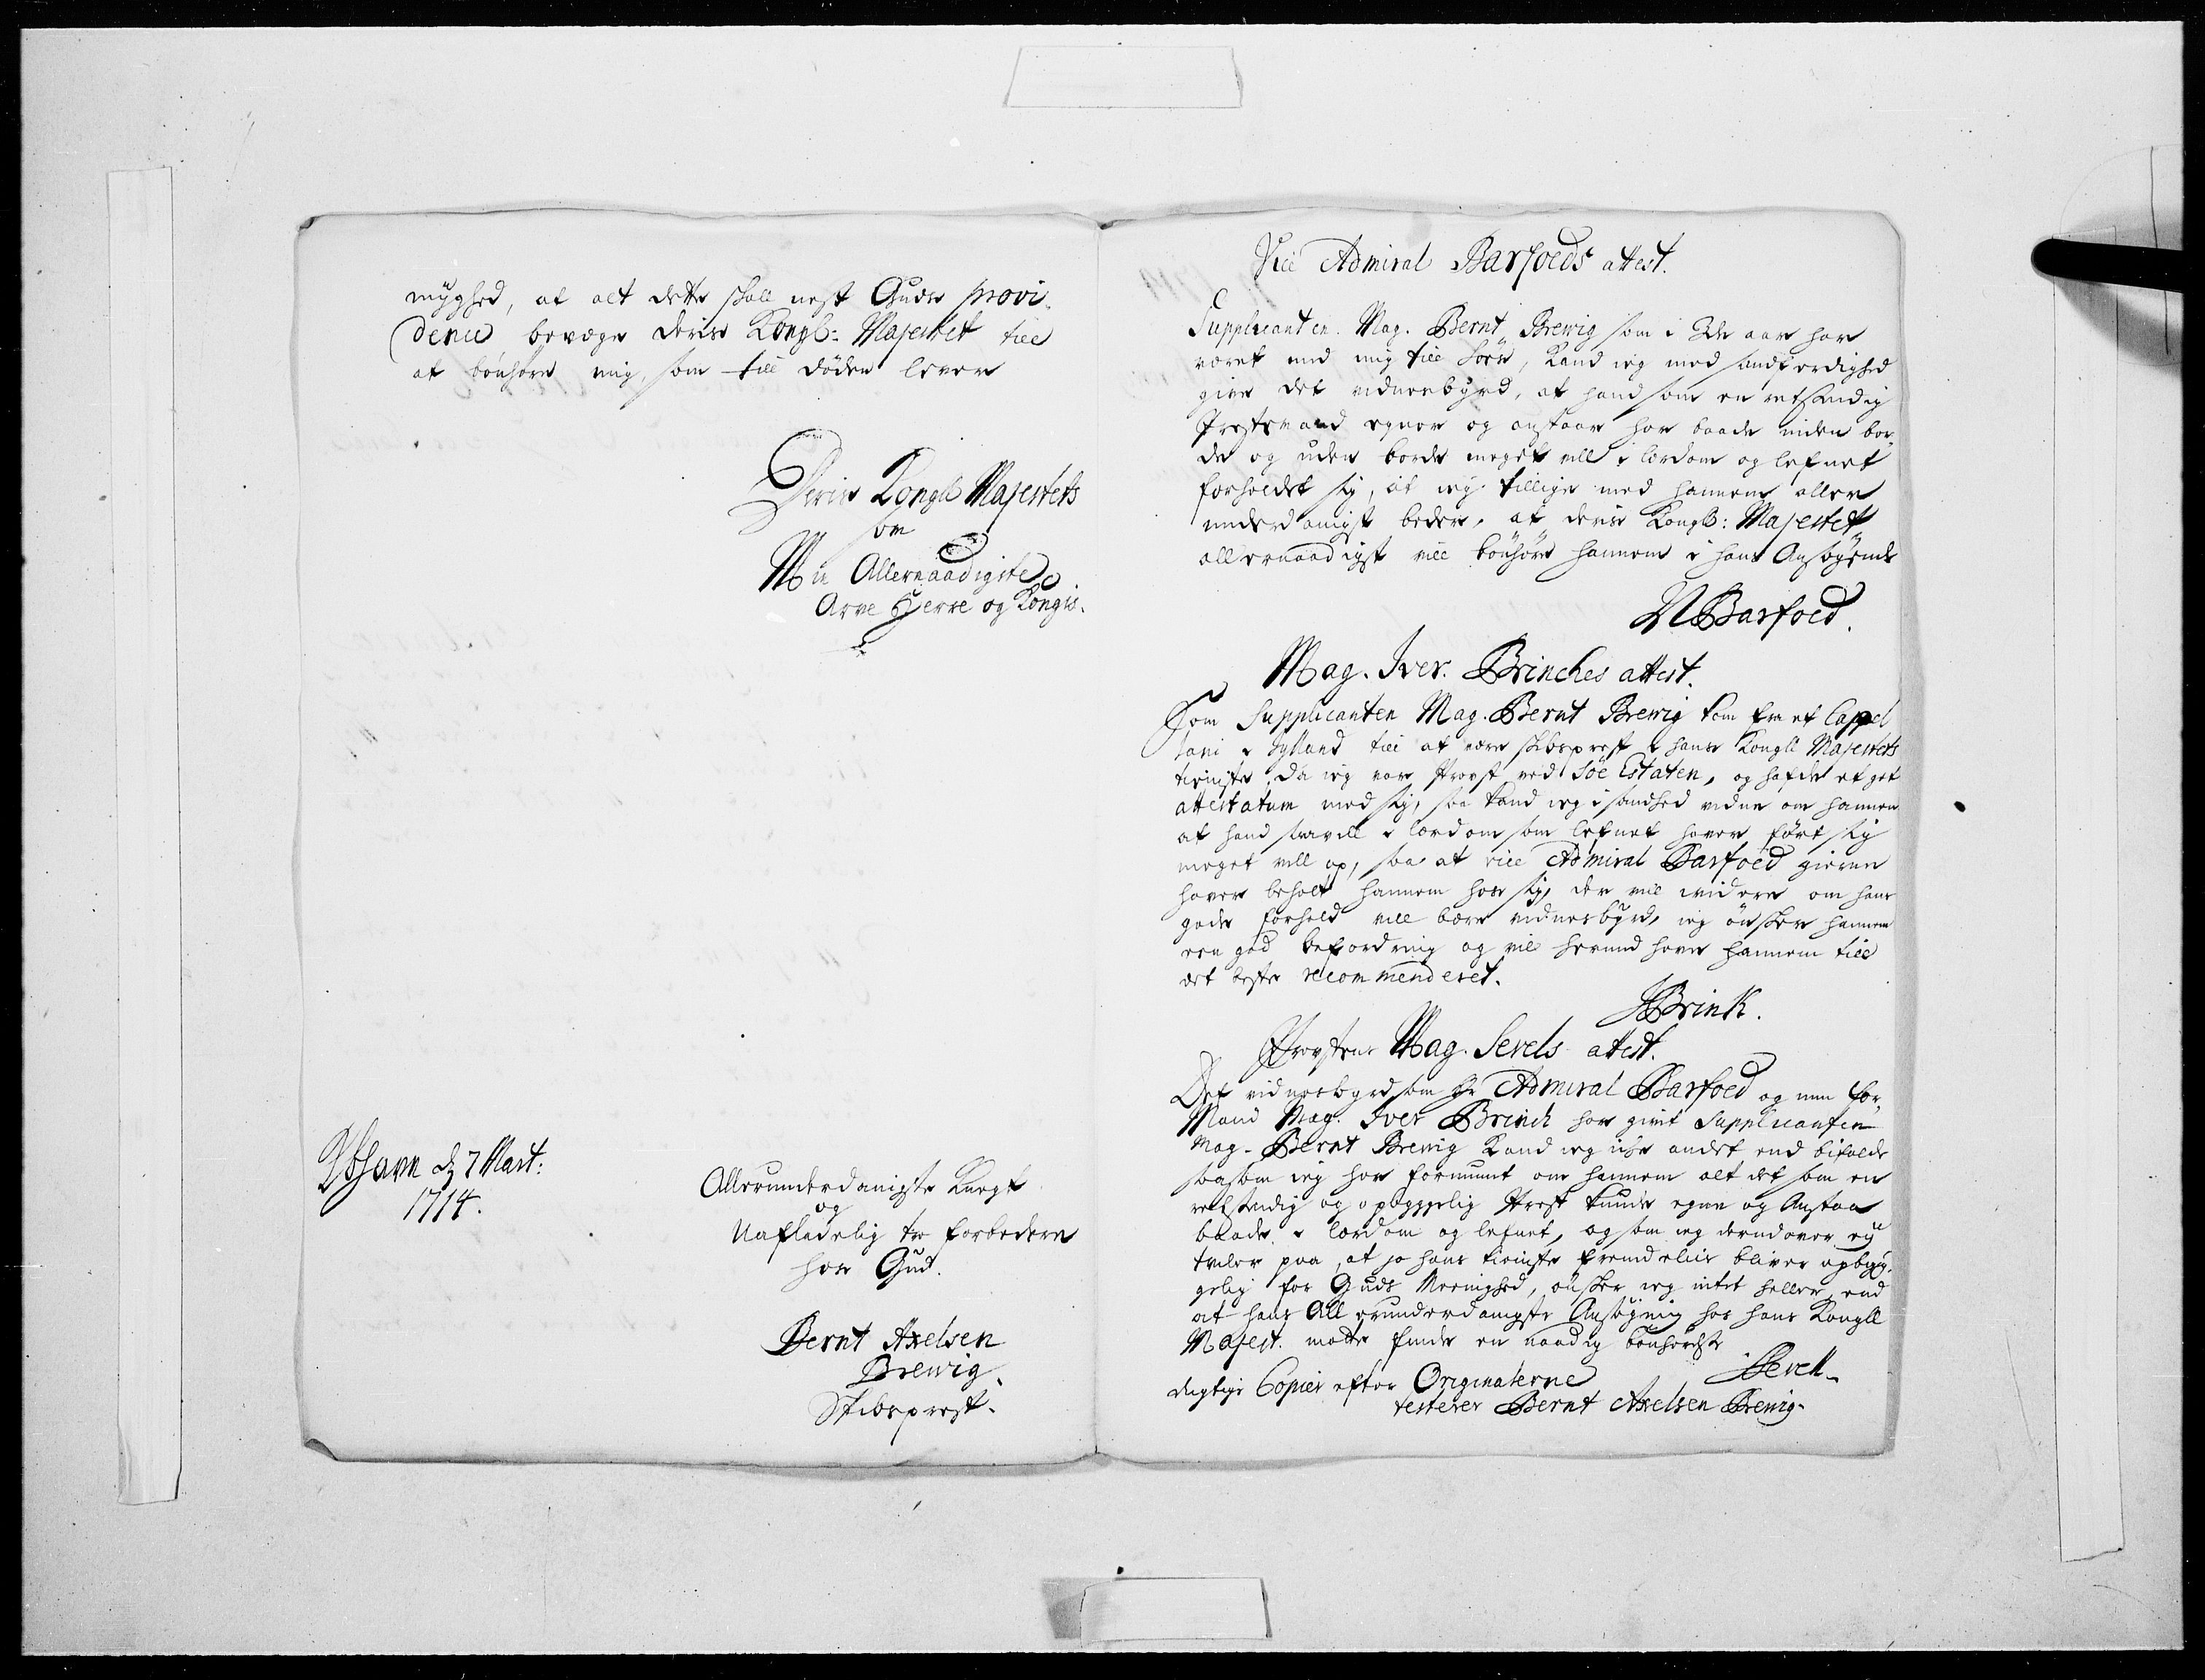 myghed, at alt dette skall nest Guds provi-
dence bevæge deris Kongl: Majestet till
at bønhøre mig, som till døden lever
Deris Kongll Majestets
som
Min Allernaadigste
Arve Herre og Kongis.
Kbhavn d 7 Mart:
1714.
Allerunderdanigste Knegt
og
Uafladelig tro forbedere
hos Gud.
Bernt Axelsen
Brewig.
Skibsprest.
Vice Admiral Barfoeds attest.
Supplicanten Mag. Bernt Brewig som i 2de aar har
været med mig till Søes, Kand ieg med sandferdighed
give det vidnesbyrd, at hand som en retsindig
Prestemand egner og anstaar har baade inden bor-
de og uden borde meget vell i lærdom og lefnet
forholdet sig, at ieg tillige med hannem aller
underdanigst beder, at deris Kongl: Majestet
allernaadigst vill bønhøre hannem i hans Ansøgende
N Barfoed.
Mag. Iver Brinches attest.
Som Supplicanten Mag. Bernt Brewig kom fra et Cappel
lani i Jylland till at være skibsprest i hans Kongll Majestets
tieniste, da ieg var Provst ved Søe Estaten, og hafde et got
attestatum med sig, saa kand ieg i sandhed vidne om hannem
at hand saavell i lærdom som lefnet haver ført sig
meget vell op, saa at vice Admiral Barfoed gierne
haver beholt hannem hos sig, der vill widere om hans
gode forhold vill bære vidnesbyrd, ieg ønsker hannem
een god befordring og vil herved have hannem till
det beste recommenderet.
I Brink.
Provstens Mag. Sevels attest.
Det vidnesbyrd som Hr Admiral Barfoed og min for,
Mand Mag. Iver Brinck har givet Supplicanten
Mag. Bernt Brewig Kand ieg icke andet end bifalde
saasom ieg har fornummt om hannem alt det som en
retsindig og opbyggelig Prest kunde egne og Anstaa
baade i lærdom og lefnet, og som ieg derudover ey
tviler paa, at jo hans tieniste fremdelis bliver opbyg-
gelig for Guds Meenighed, ønsker ieg intet heller, end
at hans Allerunderdanigste Ansøgning hos hans Kongll
Majest. motte finde en naadig bønhørelse
Sevell.
Rigtige Copier efter Originalerne
testerer Bernt Axelsen Brewig.